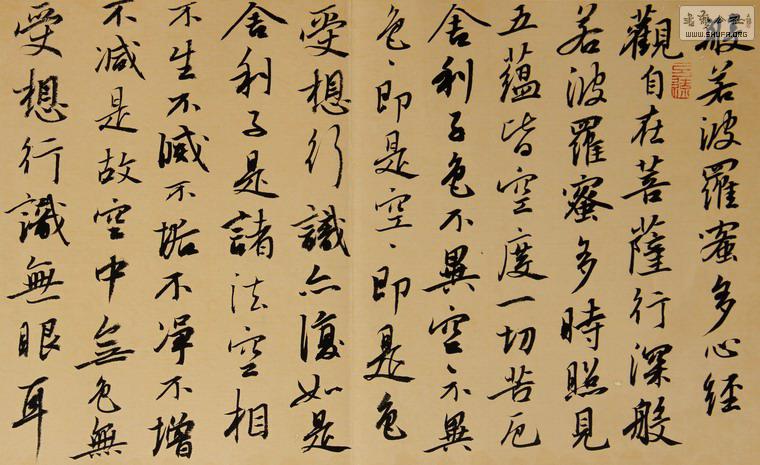 般若波羅蜜多心經
觀自在菩薩行深般
若波羅蜜多時照見
五蘊皆空度一切苦厄
舍利子色不異空、不異
色、即是空、即是色
受想行識亦復如是
舍利子是諸法空相
不生不滅不垢不淨不增
不減是故空中無色無
受想行識無眼耳
WWW.SHUFA.ORG